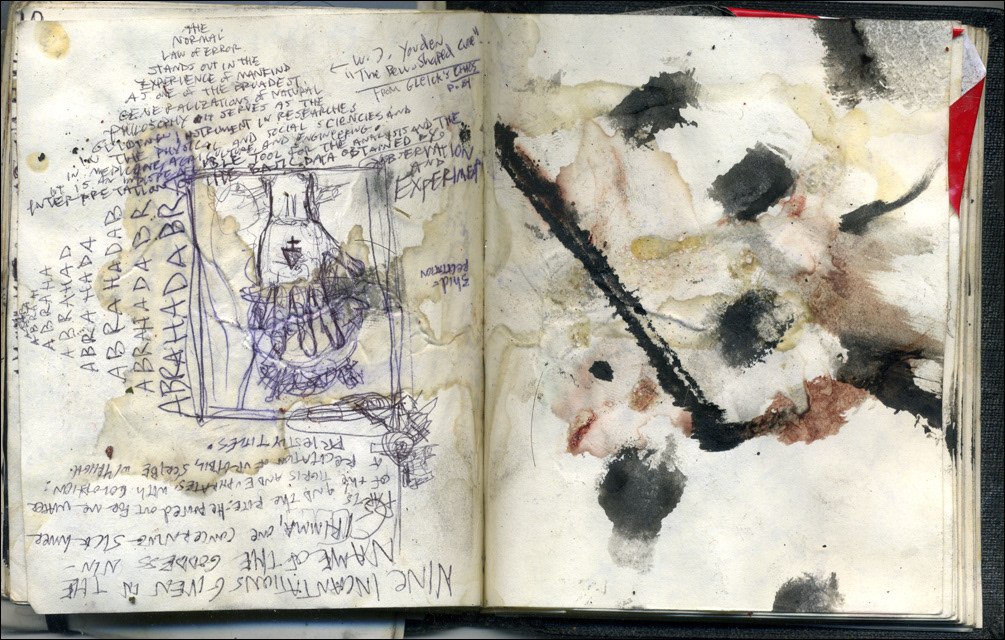 THE
NORMAL
LAW OF ERROR
STANDS OUT IN THE
EXPERIENCE OF MANKIND
AS ONE OF THE BROADEST
GENERALIZATIONS OF NATURAL
PHILOSOPHY IT SERVES AS THE
GUIDING INSTRUMENT IN RESEARCHES
IN THE PHYSICAL AND SOCIAL SCIENCIES AND
IN MEDICINE AND ENGINEERING.
IT IS AN TOOL FOR THE ANALYSIS AND THE
INTERPRETATION THE BASIC DATA OBTAINED BY
OBSERVATION
AND
EXPERIMENT
← W. J. YOUDEN
"THE BELL-SHAPED CURVE"
FROM GLEICK'S CHAOS
ABRAHADABRA
ABRAHADABR
ABRAHADAB
ABRAHADA
ABRAHAD
ABRAHA
ABRAH
Shid =
RECITATION
NINE INCANTATIONS GIVEN IN THE
NAME OF THE GODDESS NIN-
GIRIMMA, ONE CONCERNING SICK LIVER
PARTS AND THE RITE: HE POURED OUT FOR ME WATER
OF THE TIGRIS AND EUPHRATES WITH
A RECITATION OF SCRIBE W/
PRIESTLY TITLES.